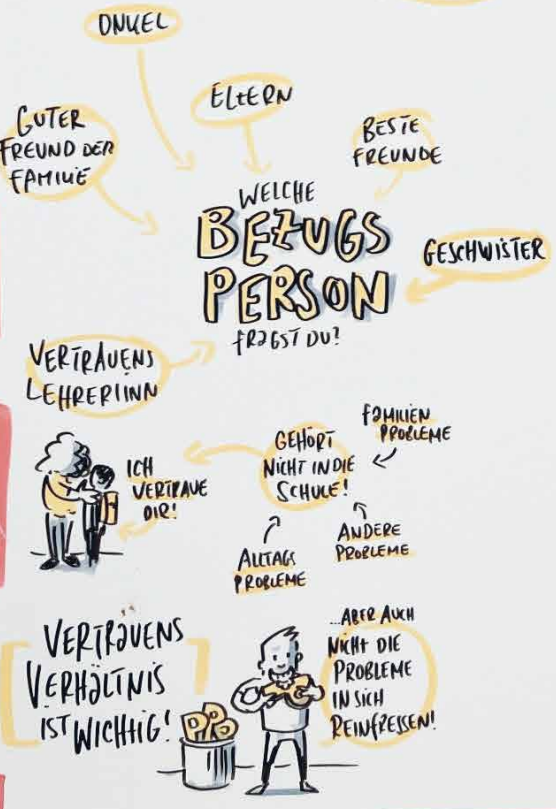 ONKEL
ELTERN
GUTER
FREUND DER
FAMILIE
BESTE
FREUNDE
WELCHE
BEZUGS
PERSON
FRAGST DU?
GESCHWISTER
VERTRAUENS
LEHRER!INN
FAMILIEN
PROBLEME
GEHÖRT
NICHT IN DIE
SCHULE!
ICH
VERTRAUE
DIR!
ANDERE
PROBLEME
ALLTAGS
PROBLEME
VERTRAUENS
VERHÄLTNIS
IST WICHTIG!
...ABER AUCH
NICHT DIE
PROBLEME
IN SICH
REINFRESSEN!